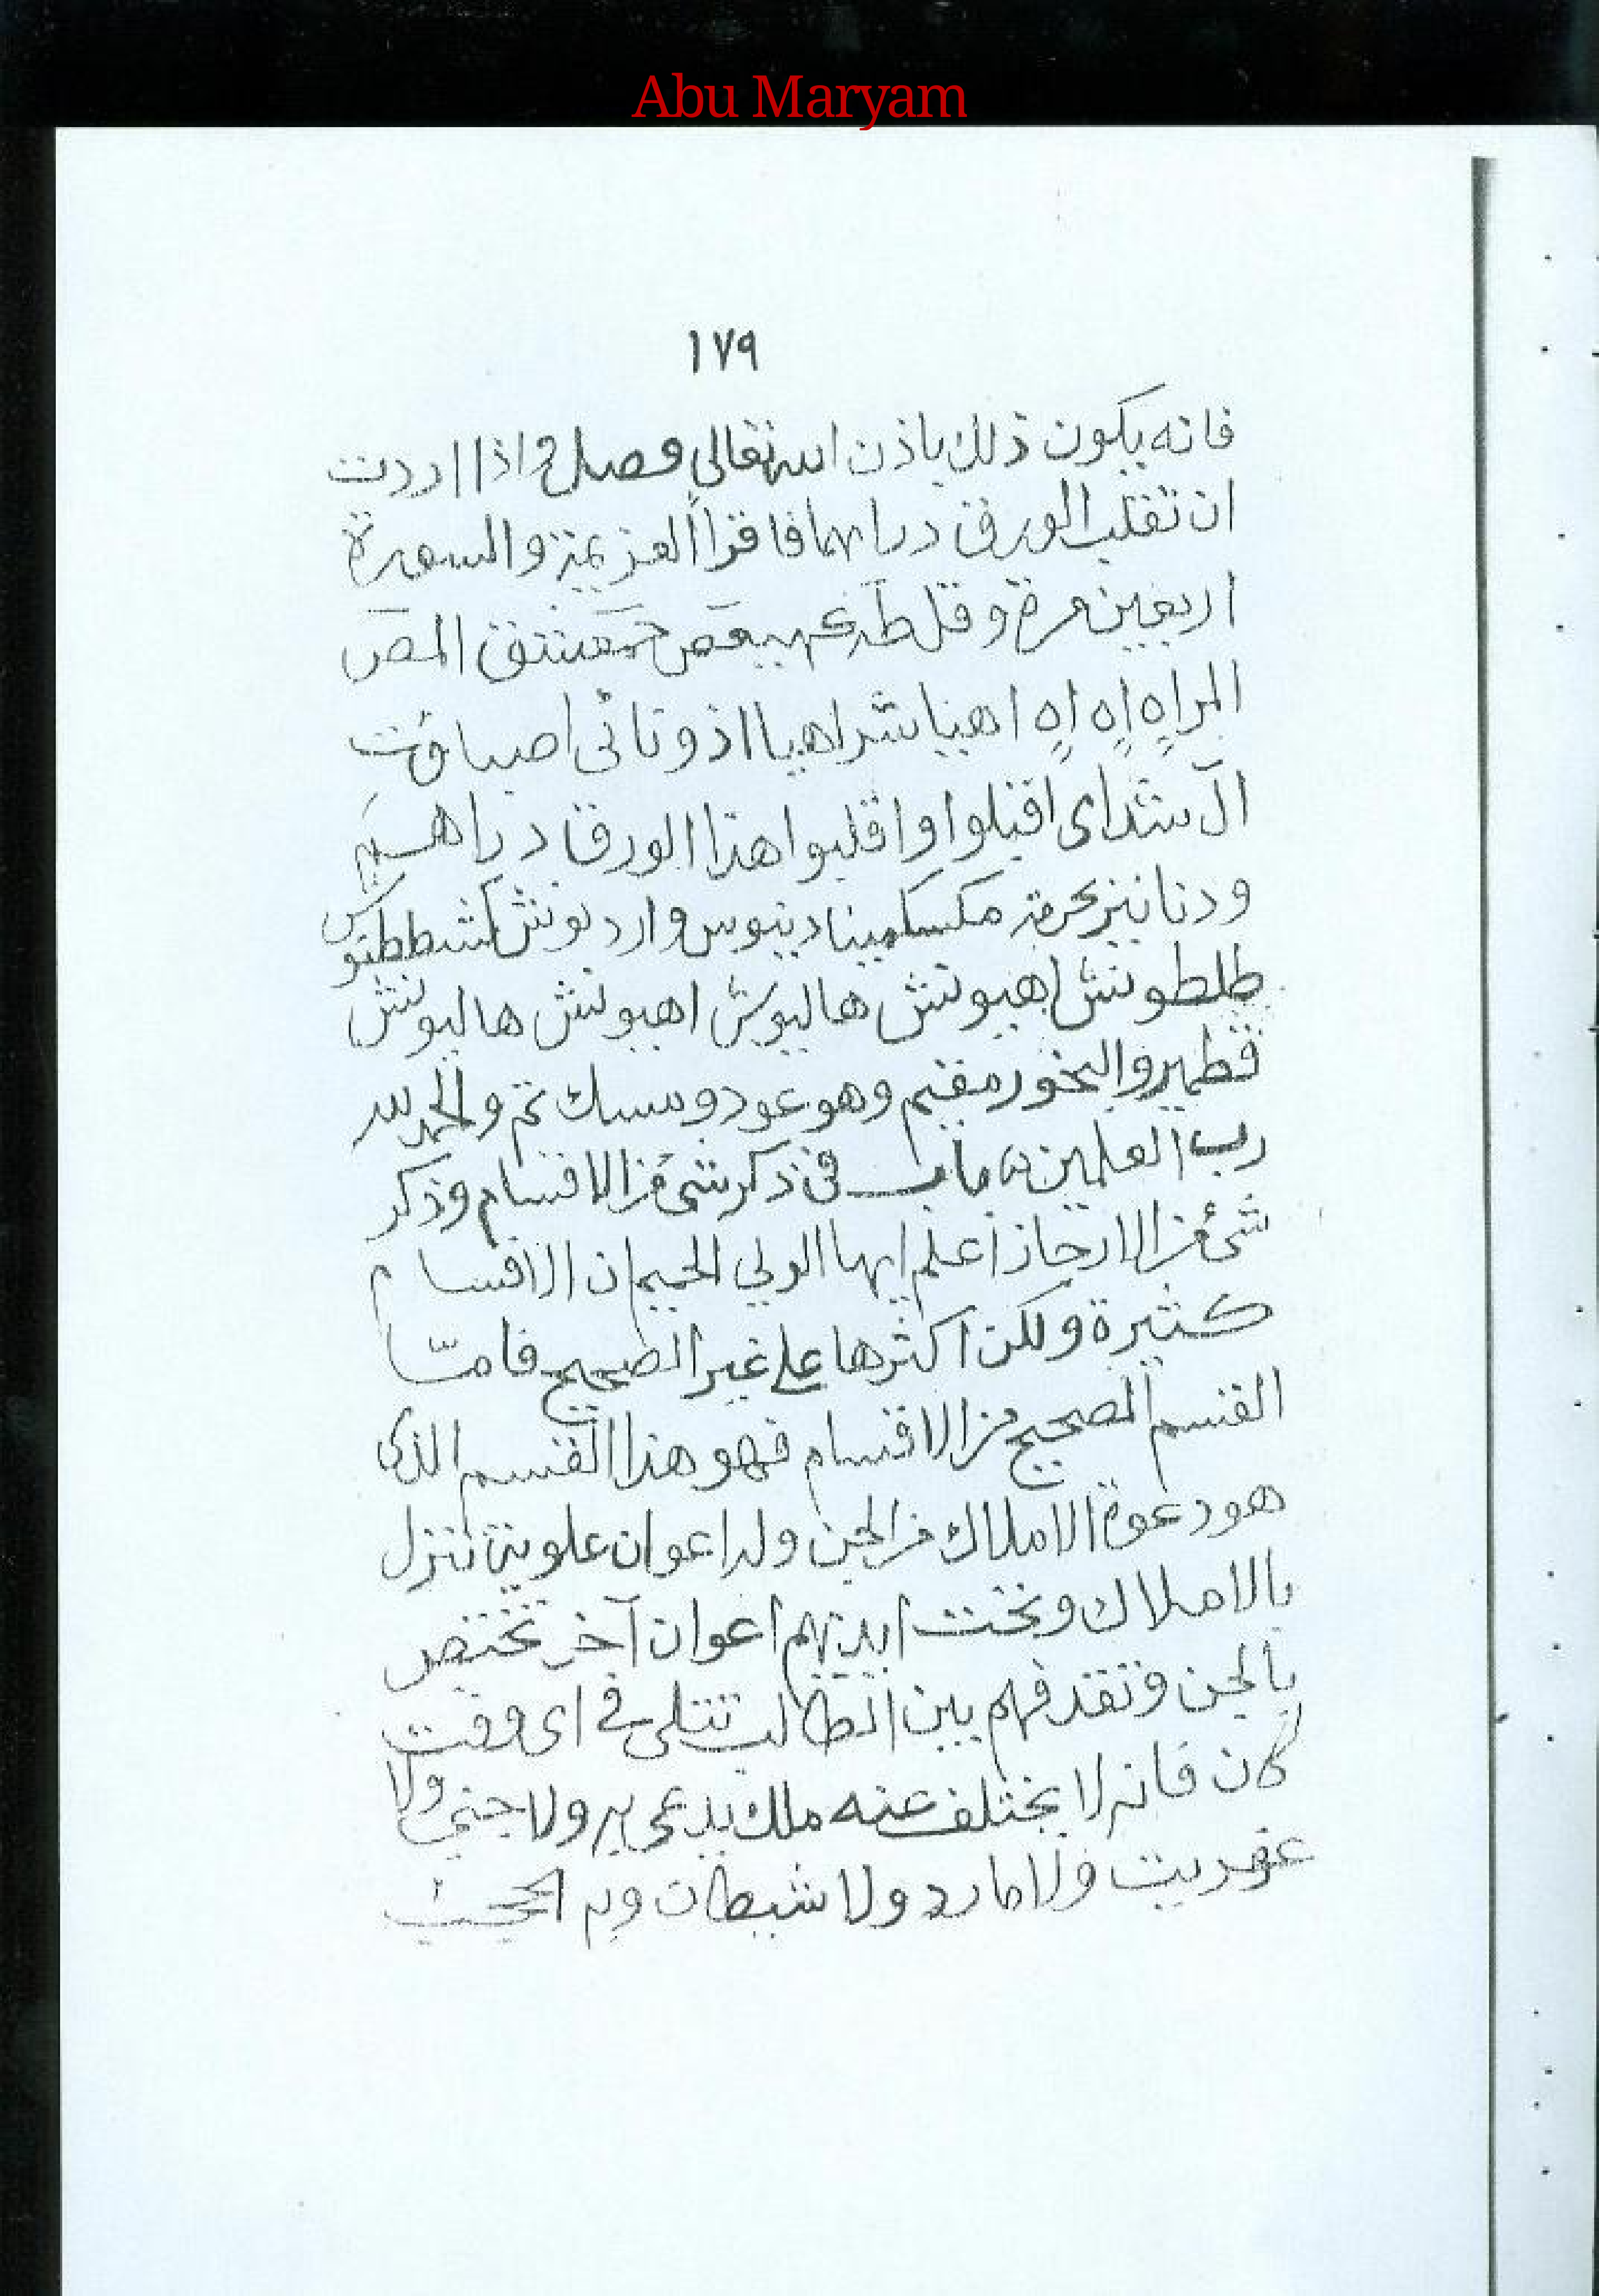 Abu Maryam
١٧٩
فانه يكون ذلك باذن الله تعالى فصل واذا اردت
ان تقلب الورق دراهما فاقرأ العزيمة والسورة
اربعين مرة وقل طه كهيعص حمعسق المص
المر اه اه اه اهيا شراهيا اذوناى اصباؤت
آل شداى اقبلوا واقلبوا هذا الورق دراهم
ودنانير بحرمة مكسلمينا دبنوس واردبونش كشططنوس
طلطونش اهبونش هاليوش اهبونش هاليونش
قطمير والبخور مقيم وهو عود ومسك تم والحمد لله
رب العلمين باب فى ذكر شئ من الاقسام وذكر
شئ من الارجاز اعلم ايها الولي الحميم ان الاقسام
كثيرة ولكن اكثرها على غير الصحيح فامّا
القسم الصحيح من الاقسام فهو هذا القسم الذى
هو دعوة الاملاك من الجن وله اعوان علوية تنزل
بالاملاك وتحت ايديهم اعوان آخر تختص
بالجن وتقدفهم بين الطالب تتلى فى اى وقت
كان فانه لا يختلف عنه ملك يدعى به ولا جنى ولا
عفريت ولا مارد ولا شيطان وبه